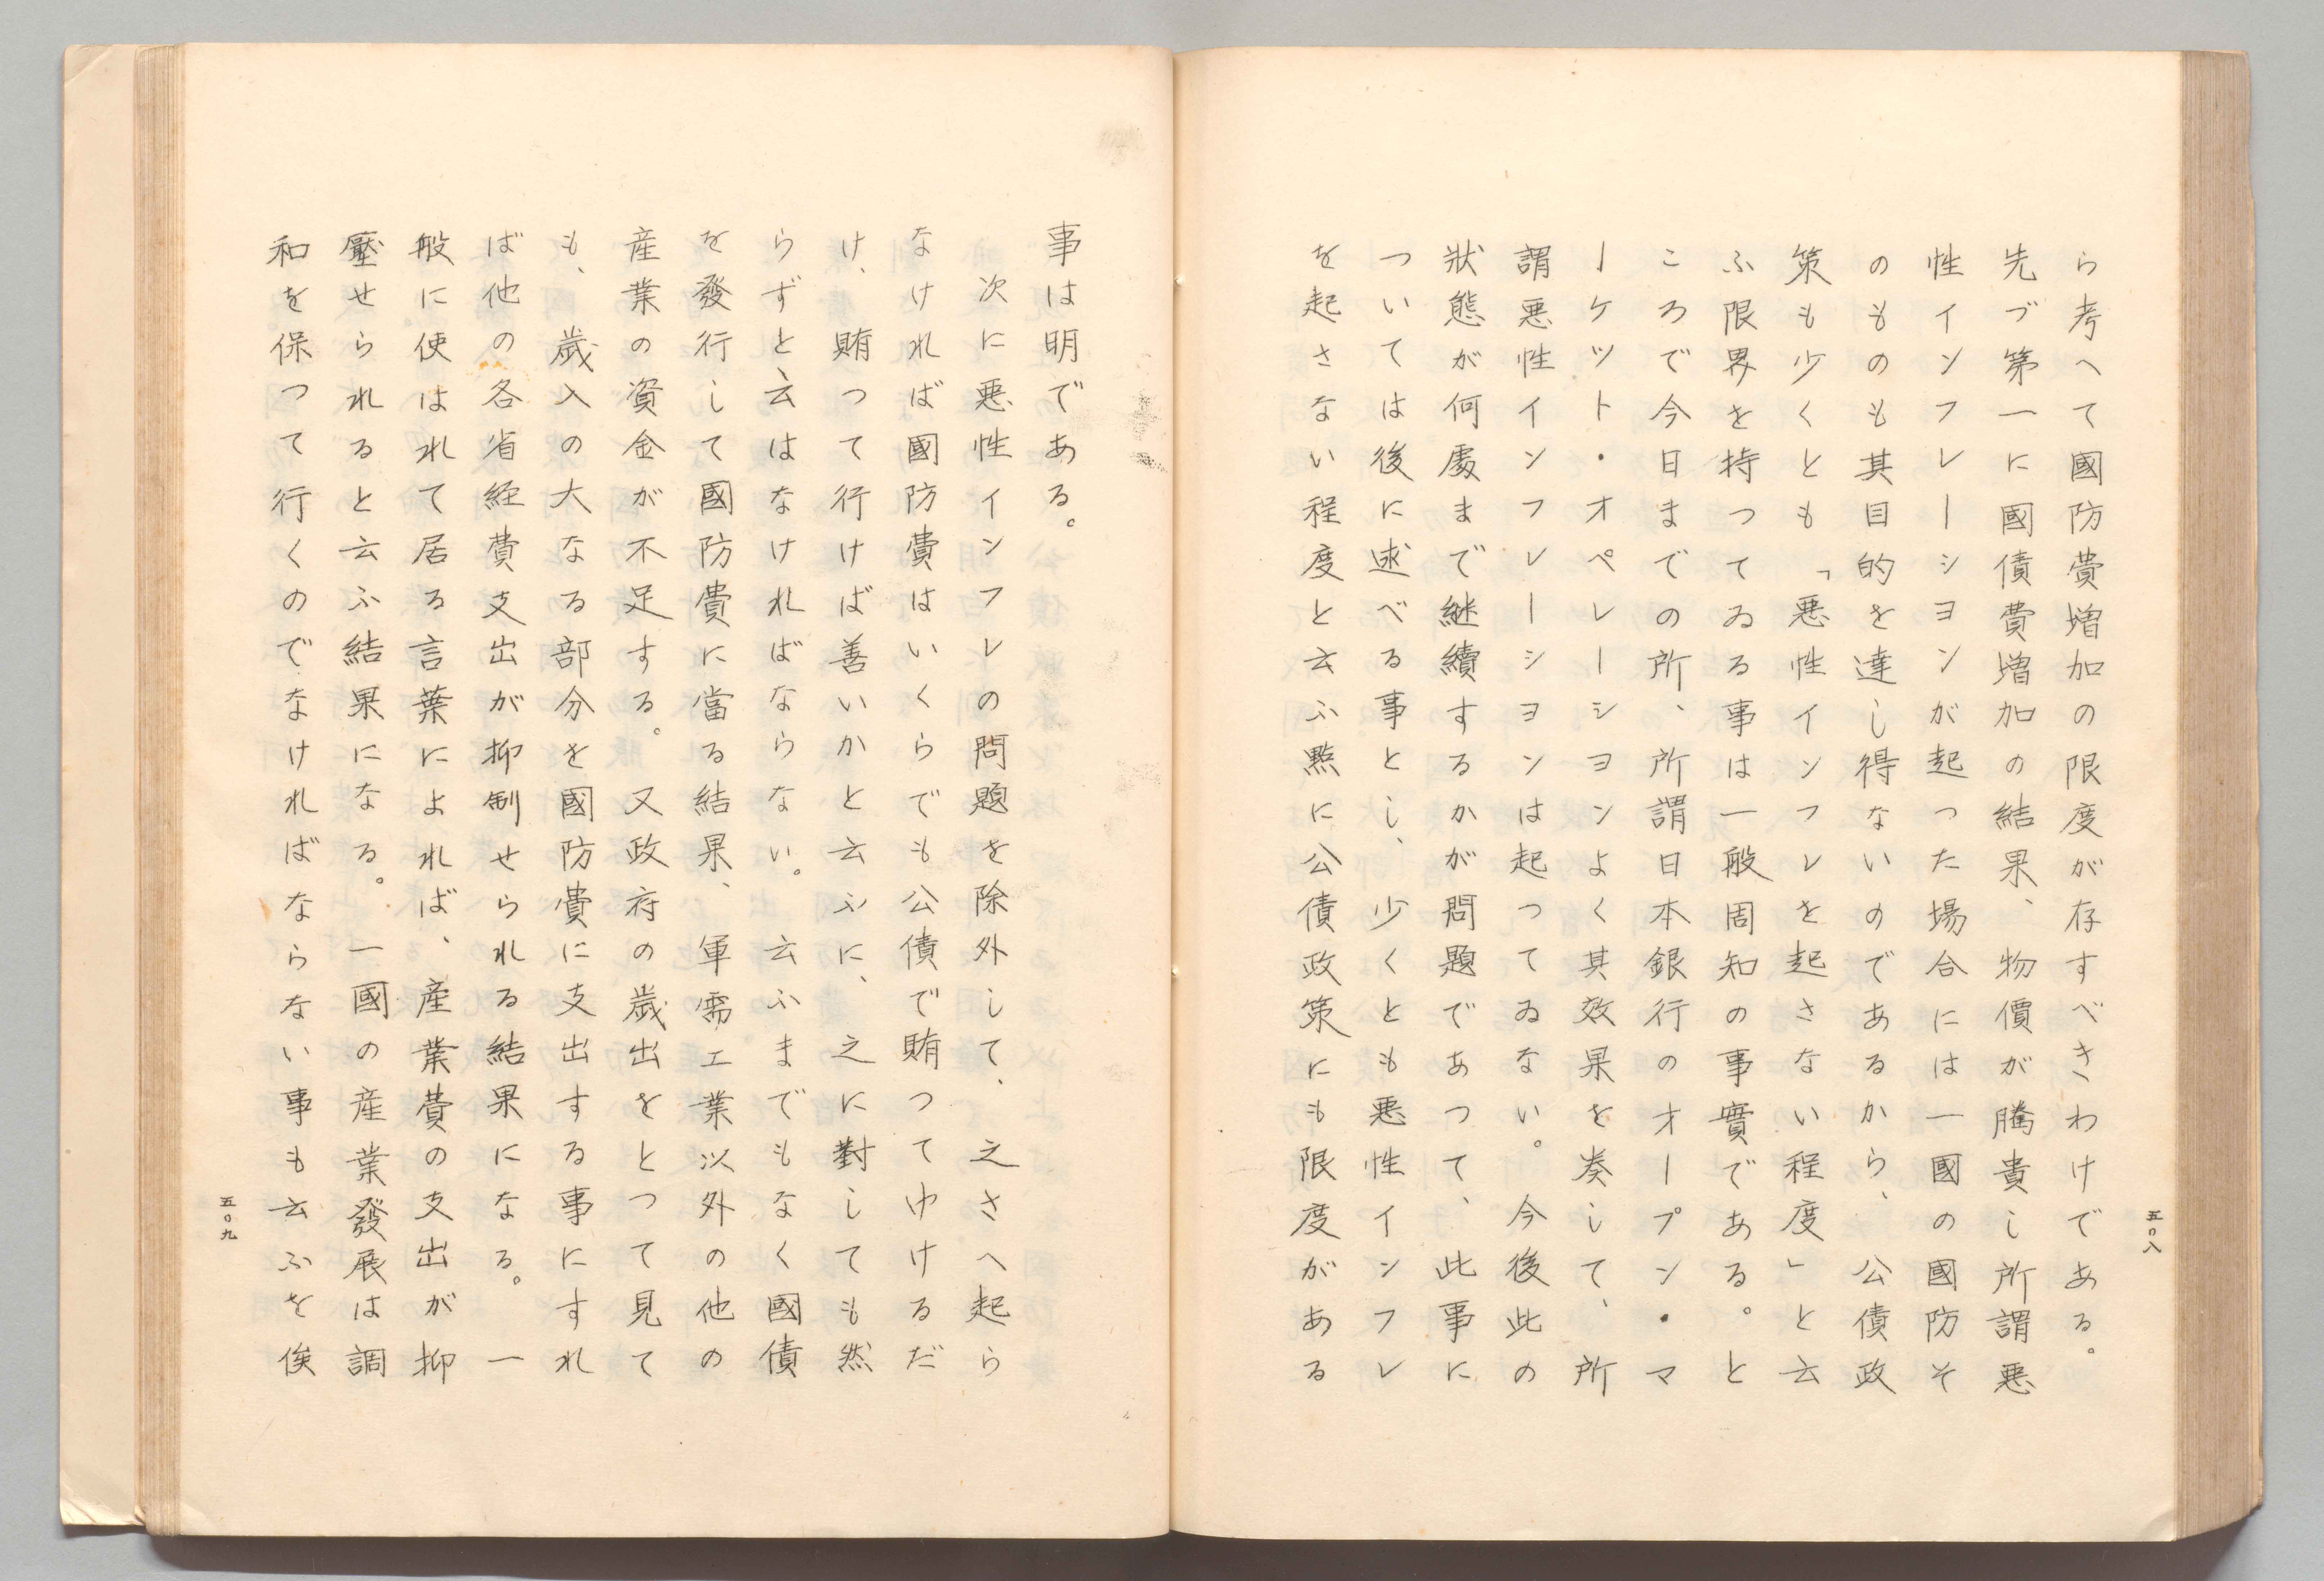 ら考へて國防費増加の限度が存すべきわけである。
先づ第一に國債費増加の結果、物價が騰貴し所謂悪
性インフレーシヨンが起つた場合には一國の國防そ
のものも其目的を達し得ないのであるから、公債政
策も少くとも「悪性インフレを起さない程度」と云
ふ限界を持つてゐる事は一般周知の事實である。と
ころで今日までの所、所謂日本銀行のオープン・マ
ーケツト・オペレーシヨンよく其效果を奏して、所
謂悪性インフレーシヨンは起つてゐない。今後此の
狀態が何處まで継續するかが問題であつて、此事に
ついては後に述べる事とし、少くとも悪性インフレ
を起さない程度と云ふ點に公債政策にも限度がある
五〇八
事は明である。
次に悪性インフレの問題を除外して、之さへ起ら
なければ國防費はいくらでも公債で賄つてゆけるだ
け、賄つて行けば善いかと云ふに、之に對しても然
らずと云はなければならない。云ふまでもなく國債
を發行して國防費に當る結果、軍需工業以外の他の
産業の資金が不足する。又政府の歳出をとつて見て
も、歳入の大なる部分を國防費に支出する事にすれ
ば他の各省経費支出が抑制せられる結果になる。一
般に使はれて居る言葉によれば、産業費の支出が抑
壓せられると云ふ結果になる。一國の産業發展は調
和を保つて行くのでなければならない事も云ふを俟
五〇九